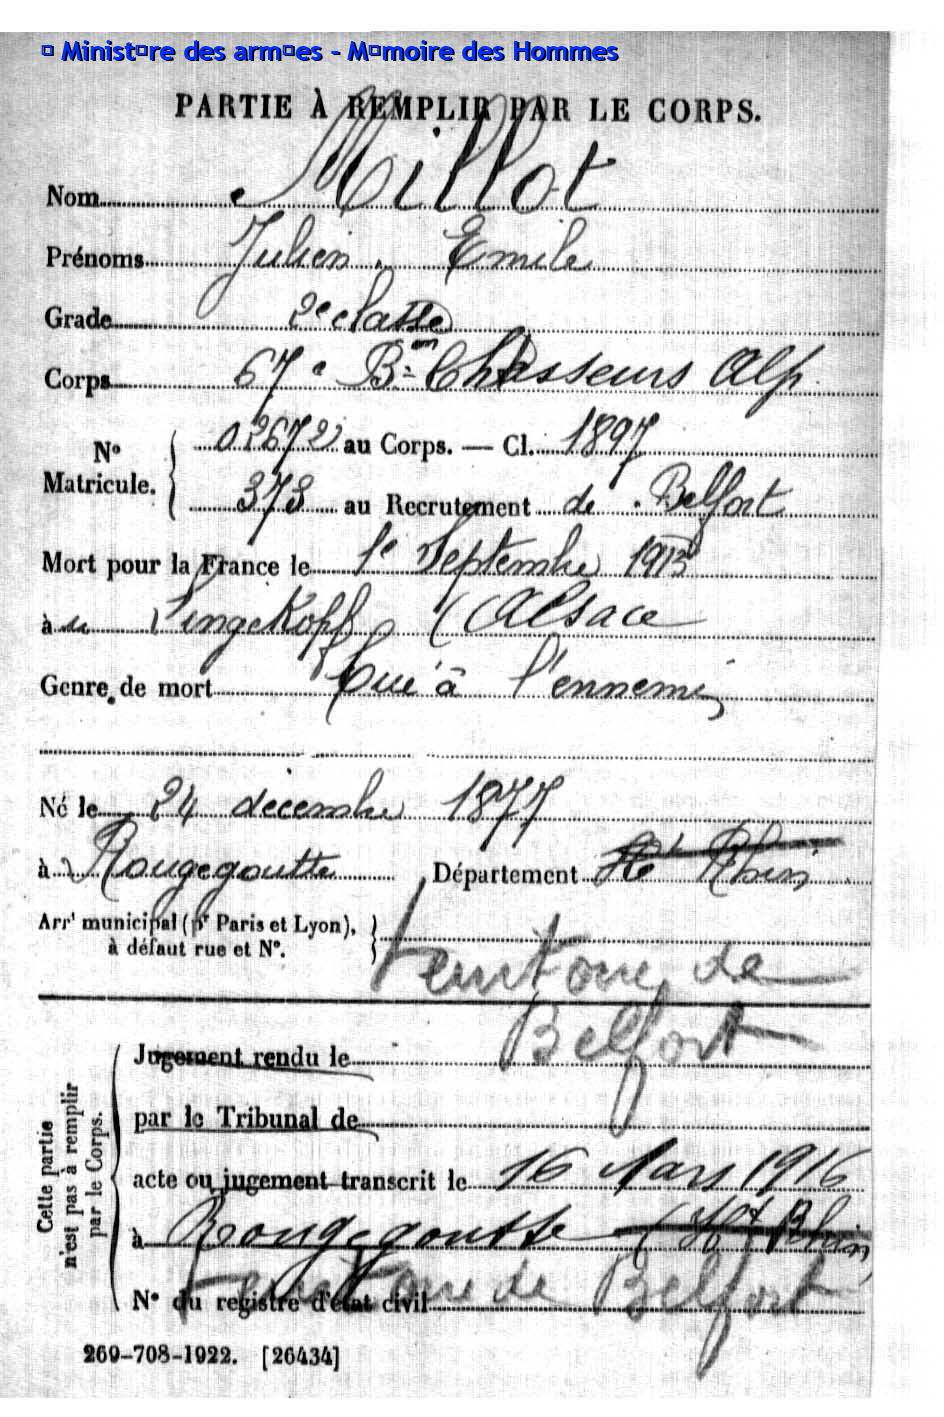 □ Minist□re des arm□es - M□moire des Hommes
PARTIE À REMPLIR PAR LE CORPS.
Nom Millot
Prénoms Julien Emile
Grade 2e classe
Corps 67e Bon Chasseurs Alp.
No Matricule. { 02672 au Corps. — Cl. 1897
373 au Recrutement de Belfort
Mort pour la France le 1e Septembre 1915
à u Lingekopf (Alsace
Genre de mort Tué à l'ennemi
Né le 24 décembre 1877
à Rougegoutte Département Ht Rhin
Arrt municipal (pr Paris et Lyon),
à défaut rue et No. }
territoire de
Belfort
Cette partie
n'est pas à remplir
par le Corps.
Jugement rendu le
par le Tribunal de
acte ou jugement transcrit le 16 Mars 1916
à Rougegoutte (Ht Rhin)
territoire de Belfort
No du registre d'état civil
269-708-1922. [26434]